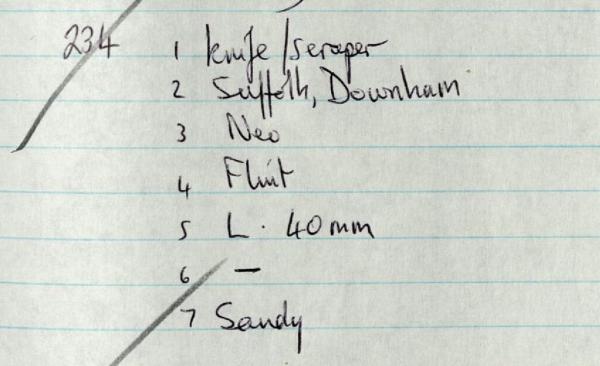 234 1 knife/scraper
2 Suffolk, Downham
3 Neo
4 Flint
5 L. 40mm
6 —
7 Sandy